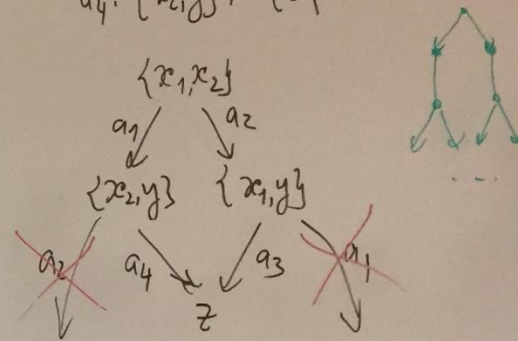 {x₁,x₂}
a₁ a₂
{x₂,y} {x₁,y}
a₂ a₄ a₃ a₁
z